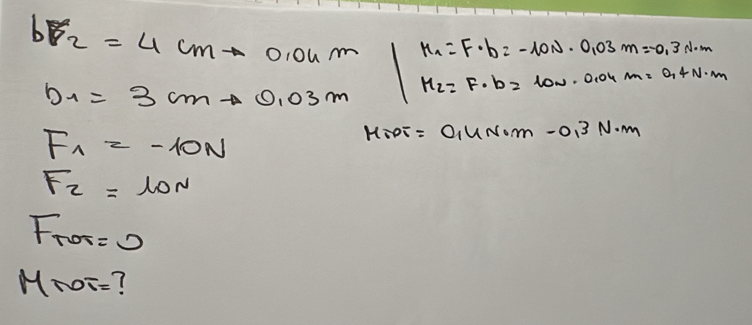 b2 = 4 cm → 0,04 m
b1 = 3 cm → 0,03 m
F1 = -10N
F2 = 10N
FTOT = 0
MTOT = ?
M1 = F · b = -10N · 0,03 m = -0,3 N·m
M2 = F · b = 10N · 0,04 m = 0,4 N·m
MTOT = 0,4 N·m - 0,3 N·m